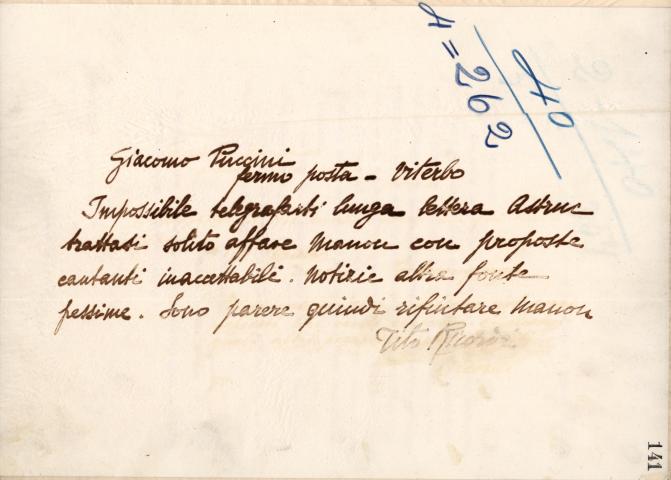 40
4 = 262
Giacomo Puccini
fermo posta - Viterbo
Impossibile telegrafarti lunga lettera Astruc
trattasi solito affare Manon con proposte
cantanti inaccettabili. Notizie altra fonte
pessime. Sono parere quindi rifiutare Manon
Tito Ricordi
141